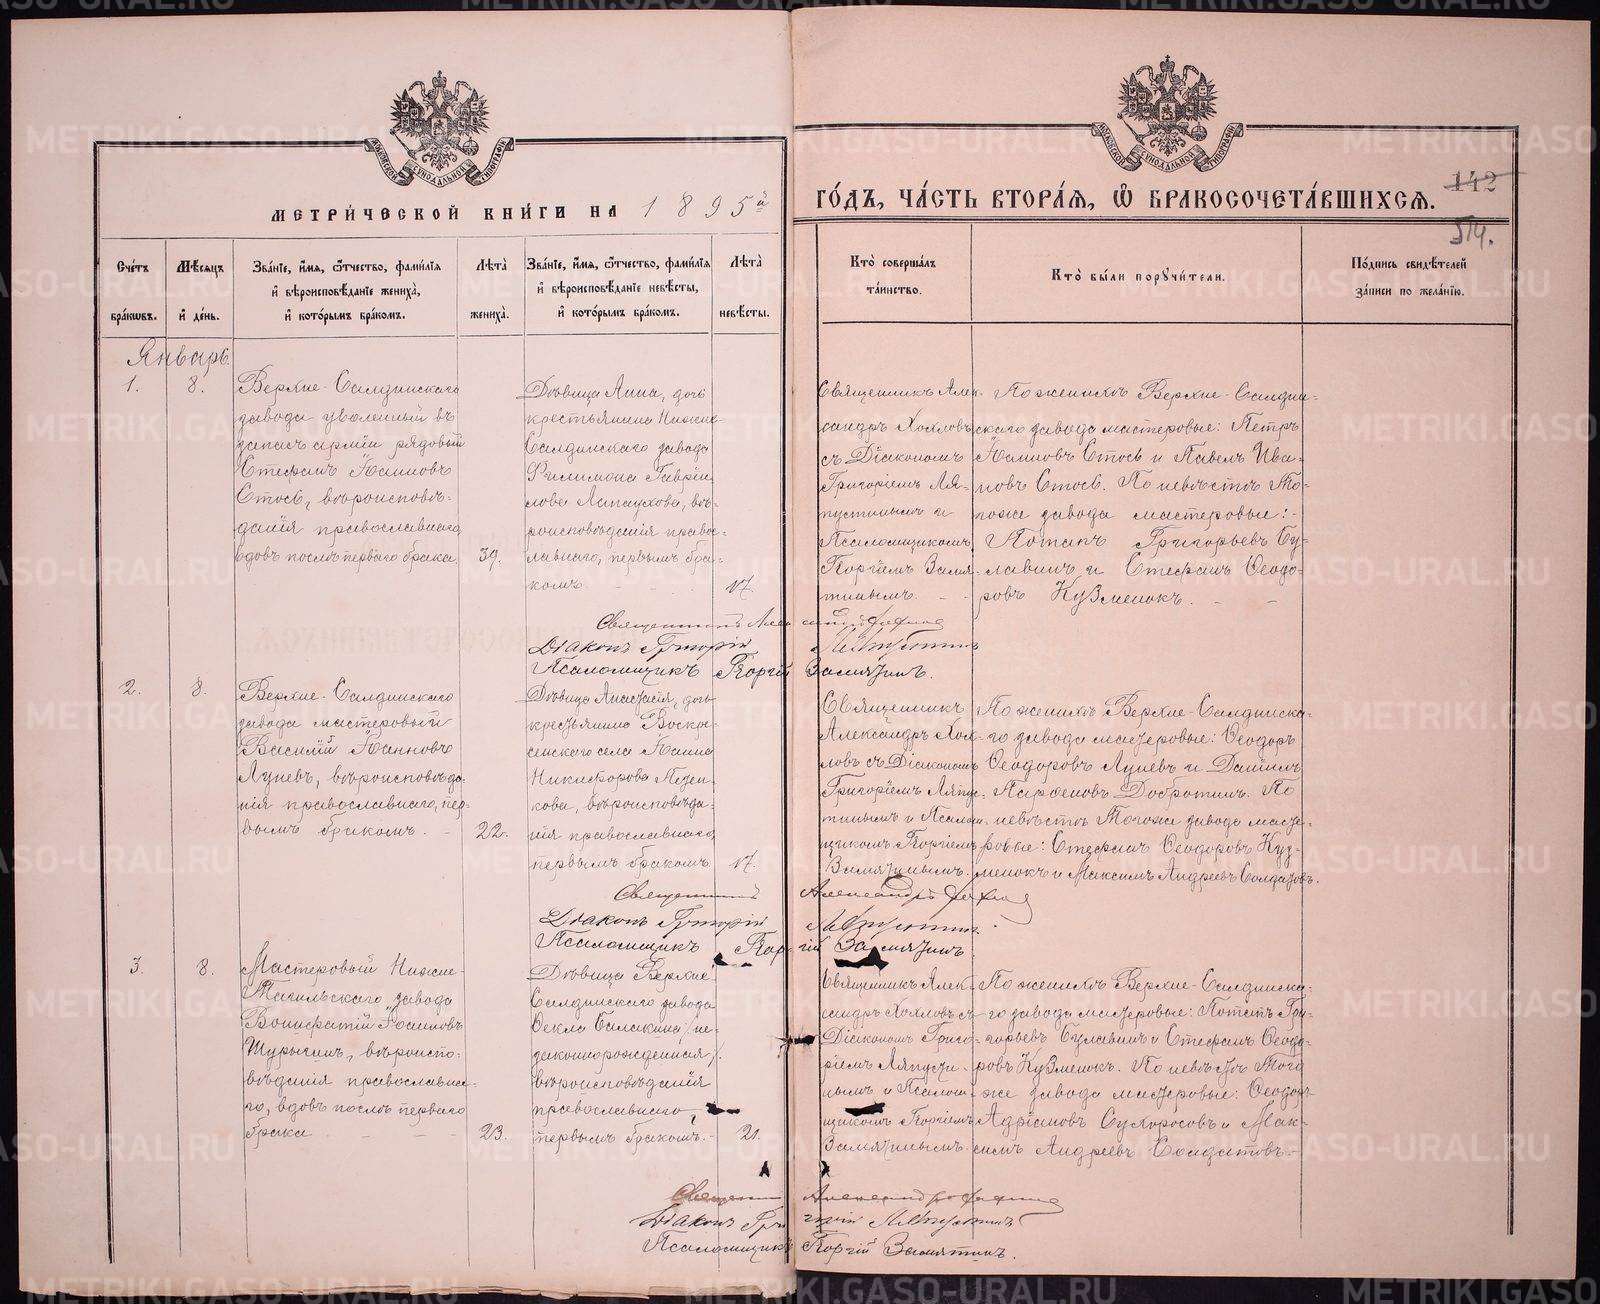 МЕТРИ́ЧЕСКОЙ КНИ́ГИ НА 1895й
ГО́ДЪ, ЧА́СТЬ ВТОРА́Я, Ѿ БРАКОСОЧЕТА́ВШИХСЯ.
142
514.
Сче́тъ бра́кѡвъ.
Мѣ́сяцъ и҆ де́нь.
Зва́нїе, и҆́мя, ѻ҆́тчество, фами́лїя
и҆ вѣроисповѣ́данїе жениха̀,
и҆ кото́рымъ бра́комъ.
Лѣ́та жениха̀.
Зва́нїе, и҆́мя, ѻ҆́тчество, фами́лїя
и҆ вѣроисповѣ́данїе невѣ́сты,
и҆ кото́рымъ бра́комъ.
Лѣ́та невѣ́сты.
Кто̀ соверша́лъ
та́инство.
Кто̀ бы́ли порꙋчи́тели.
По́дпись свидѣ́телей
за́писи по жела́нїю.
Январь
1.
8.
Верхне-Салдинскаго
завода уволенный въ
запасъ армiи рядовый
Стефанъ Iоанновъ
Стосѣ, вѣроисповѣ-
данiя православнаго,
вдовъ послѣ перваго брака
39.
Дѣвица Анна, дочь
крестьянина Нижне-
Салдинскаго завода
Филимона Гаврiи-
лова Лапаухова, вѣ-
роисповѣданiя правос-
лавнаго, первымъ бра-
комъ
17.
Священникъ Алек-
сандръ Хохловъ
съ Дiакономъ
Григорiемъ Ля-
пустинымъ и
Псаломщикомъ
Георгiемъ Замя-
тнинымъ.
По женихѣ Верхне-Салдин-
скаго завода мастеровые: Петръ
Iоанновъ Стосѣ и Павелъ Ива-
новъ Стосѣ. По невѣстѣ То-
гоже завода мастеровые:-
Потапъ Григорьевъ Бу-
лавинъ и Стефанъ Ѳеодо-
ровъ Кузменокъ.
Священникъ
Дiаконъ Григорiй Ляпустинъ
Псаломщикъ Георгiй Замятнинъ.
2.
8.
Верхне-Салдинскаго
завода мастеровый
Василiй Iоанновъ
Луневъ, вѣроисповѣда-
нiя православнаго, пер-
вымъ бракомъ.
22.
Дѣвица Анастасiя, дочь
крестьянина Воскре-
сенскаго села Iоанна
Никифорова Пузен-
кова, вѣроисповѣда-
нiя православнаго
первымъ бракомъ.
17.
Священникъ
Александръ Хох-
ловъ съ Дiакономъ
Григорiемъ Ляпус-
тинымъ и Псалом-
щикомъ Георгiемъ
Замятнинымъ.
По женихѣ Верхне-Салдинска-
го завода мастеровые: Ѳеодоръ
Ѳеодоровъ Луневъ и Данiилъ
Парѳеновъ Добротинъ. По
невѣстѣ Тогоже завода масте-
ровые: Стефанъ Ѳеодоровъ Куз-
менокъ и Максимъ Андреевъ Солдатовъ.
Священникъ Александръ
Дiаконъ Григорiй Ляпустинъ.
Псаломщикъ Георгiй Замятнинъ
3.
8.
Мастеровый Нижне-
Тагильскаго завода
Вонифатiй Iоанновъ
Шурыгинъ, вѣроиспо-
вѣданiя православна-
го, вдовъ послѣ перваго
брака
23.
Дѣвица Верхне-
Салдинскаго завода
Ѳекла Балакина /не-
законнорожденная/.
вѣроисповѣданiя
православнаго,
первымъ бракомъ.-
21.
Священникъ Алек-
сандръ Хохловъ съ
Дiакономъ Григо-
рiемъ Ляпусти-
нымъ и Псалом-
щикомъ Георгiемъ
Замятнинымъ.
По женихѣ Верхне-Салдинска-
го завода мастеровые: Потапъ Гри-
горьевъ Булавинъ и Стефанъ Ѳеодо-
ровъ Кузменокъ. По невѣстѣ Того
же завода мастеровые: Ѳеодоръ
Адрiановъ Сухоросовъ и Мак-
симъ Андреевъ Солдатовъ.-
Священникъ Александръ
Дiаконъ Григорiй Ляпустинъ
Псаломщикъ Георгiй Замятнинъ.
METRIKI.GASO-URAL.RU